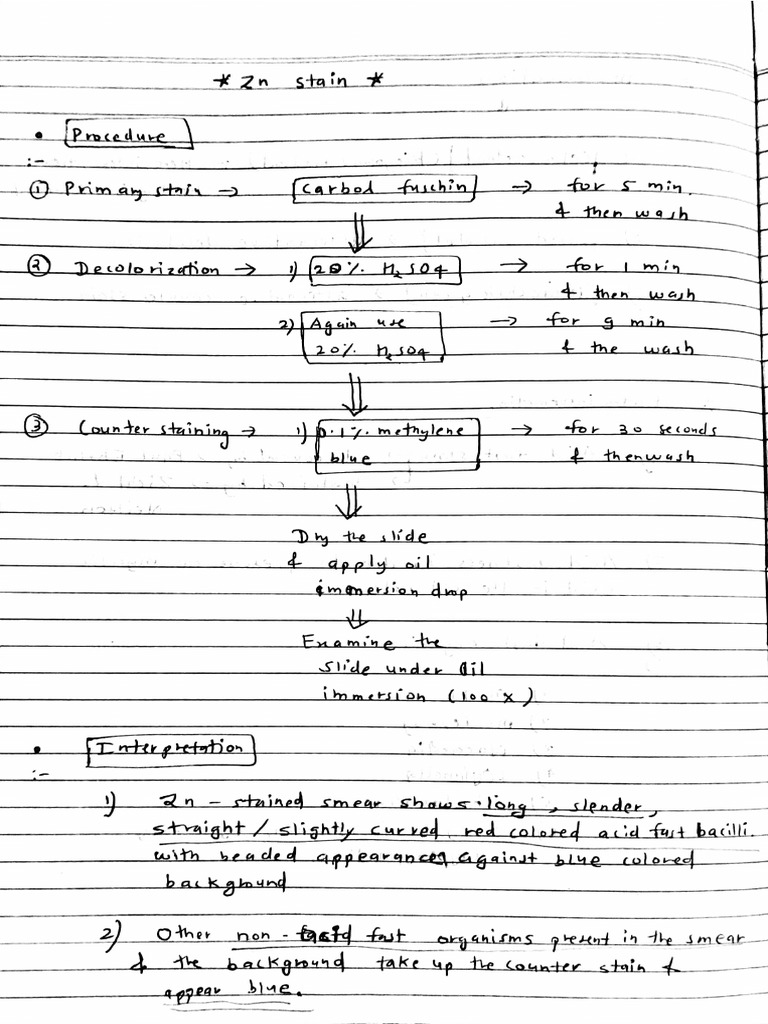 * Zn stain *
• Procedure
:-
① Primary stain → Carbol fuschin → for 5 min.
& then wash
② Decolorization → 1) 20% H2SO4 → for 1 min
& then wash
2) Again use → for 9 min
20% H2SO4 & the wash
③ Counter staining → 1) 0.1% methylene → for 30 seconds
blue & then wash
Dry the slide
& apply oil
immersion drop
Examine the
slide under Oil
immersion (100 x)
• Interpretation
:-
1) Zn - stained smear shows long, slender,
straight / slightly curved red colored acid fast bacilli.
with beaded appearances against blue colored
background
2) Other non - acid fast organisms present in the smear
& the background take up the counter stain &
appear blue.